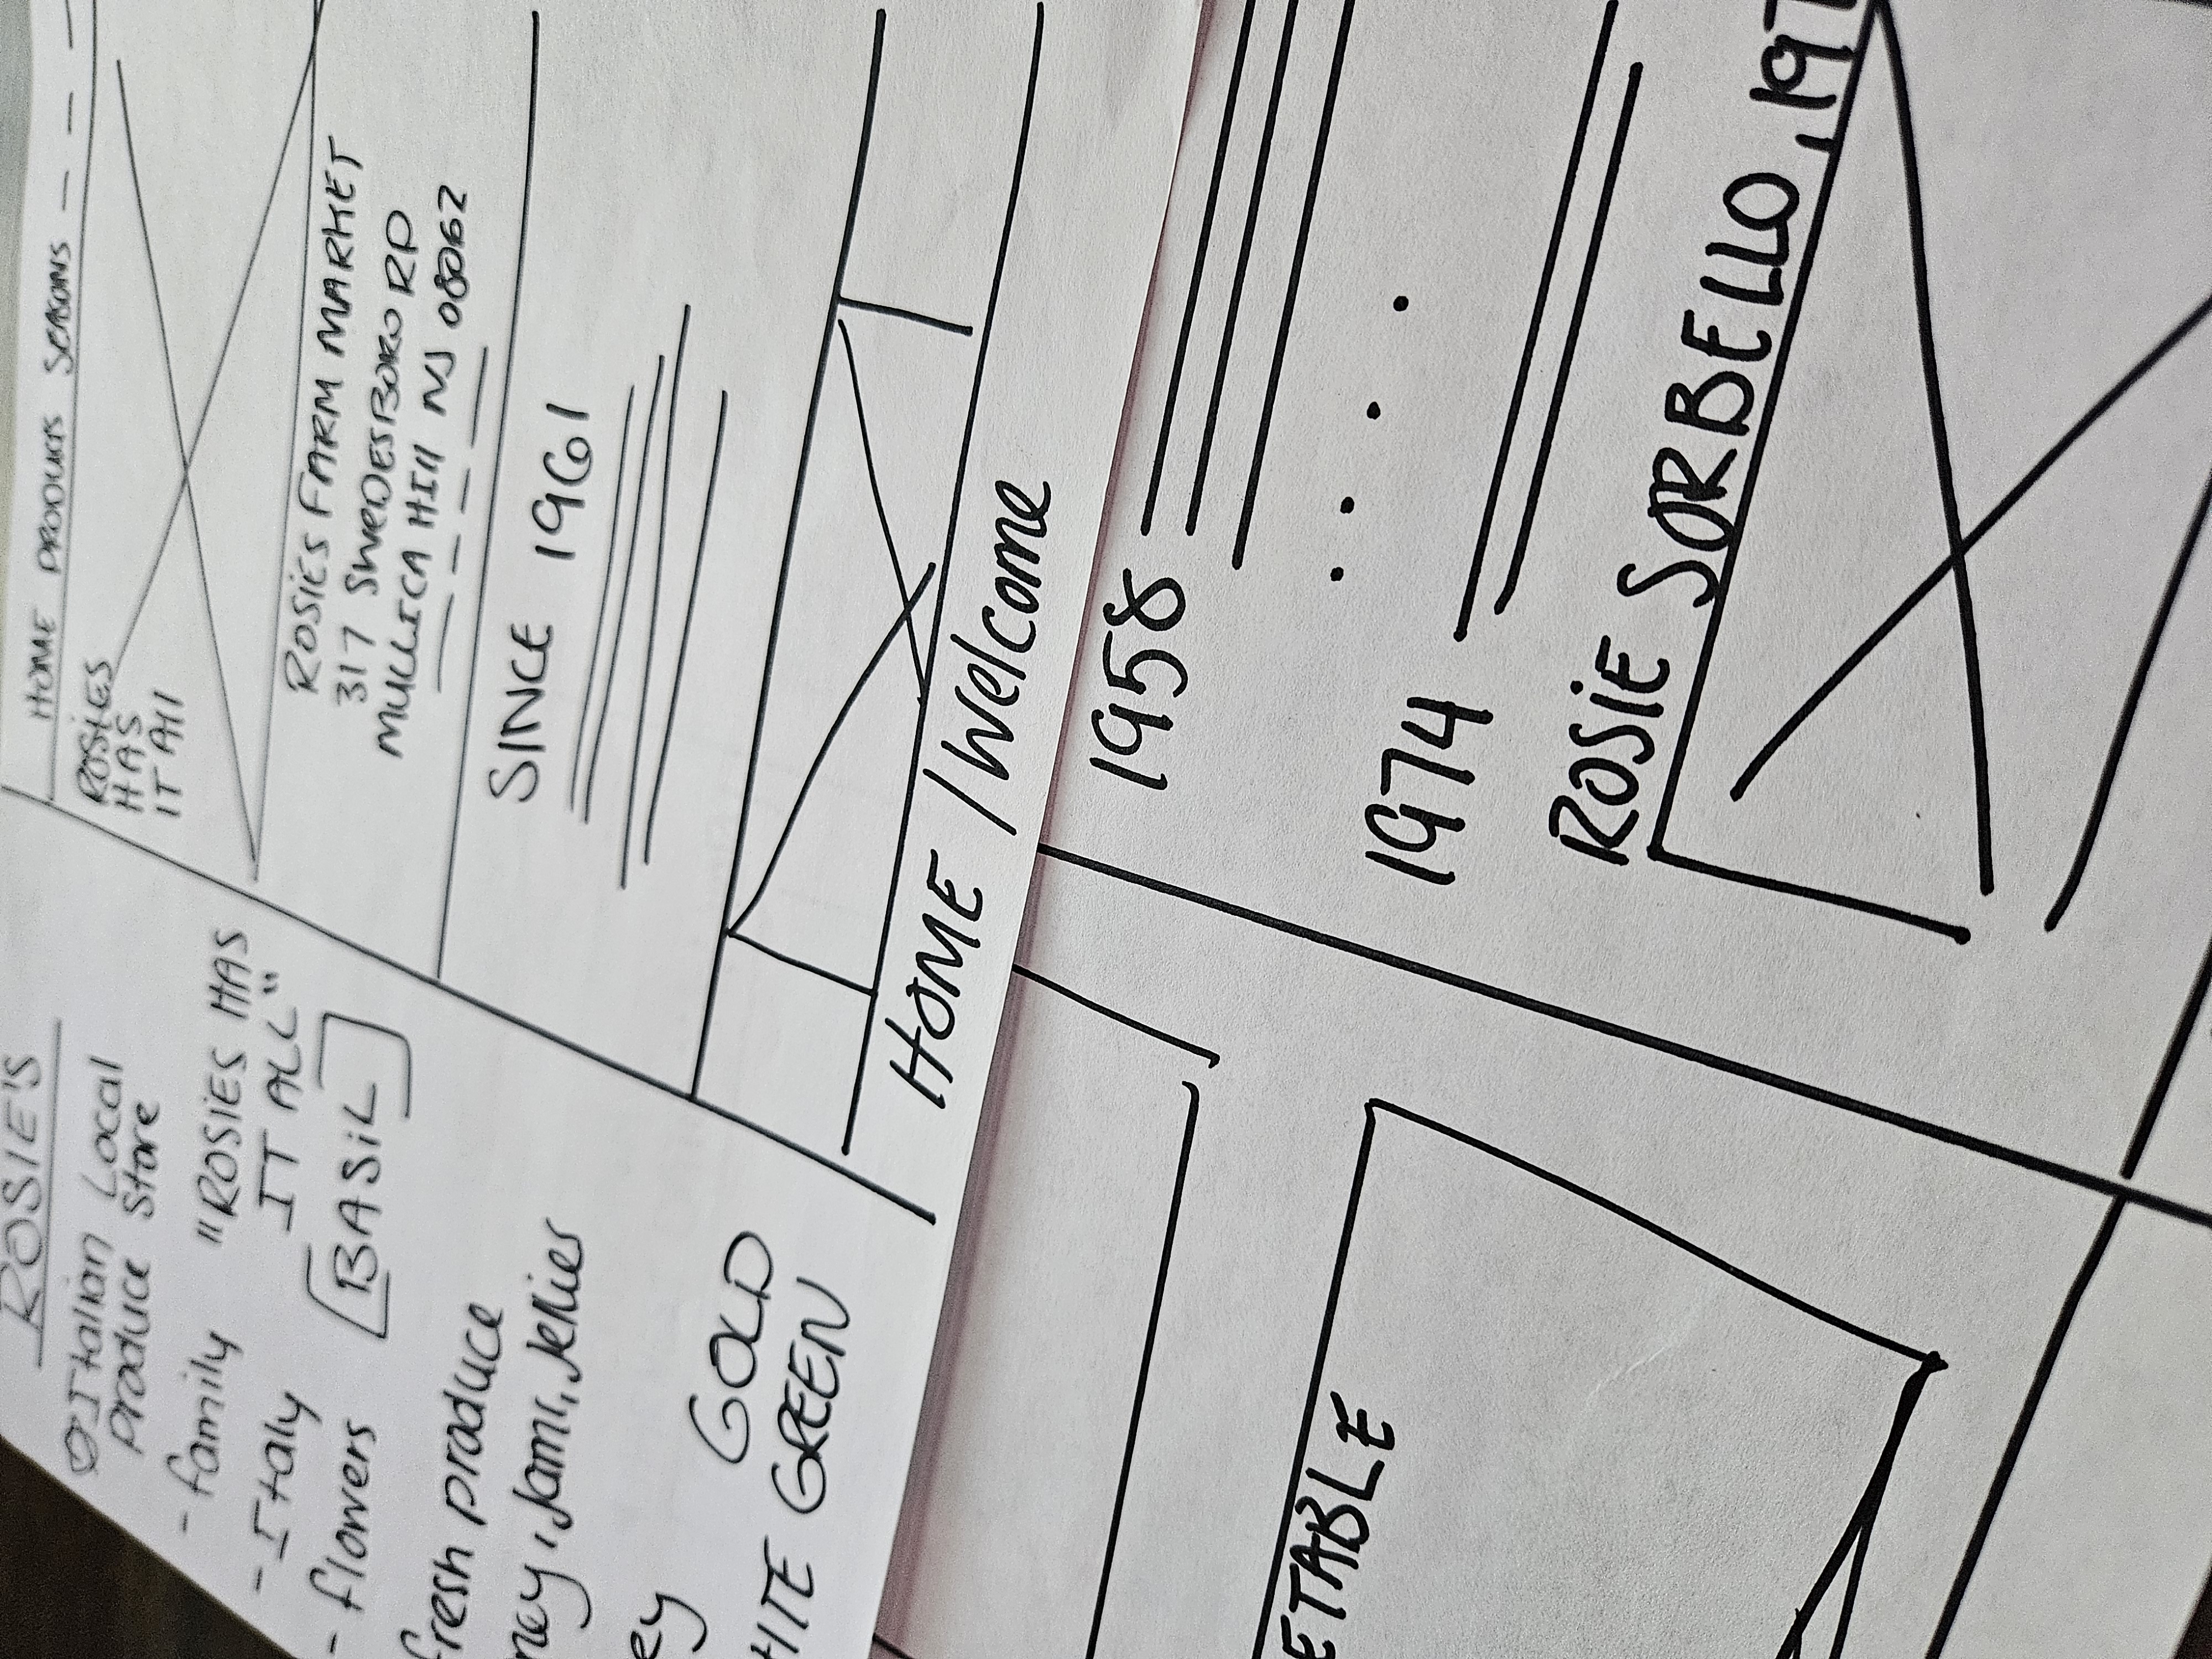 ROSIE'S
Italian Local
produce store
- family
"ROSIES HAS
IT ALL"
- Italy
- flowers
[BASiL]
fresh produce
ney, Jams, Jellies
ey
GOLD
HITE GREEN
HOME PRODUCTS SEASONS
ROSIES
HAS
IT All
ROSIES FARM MARKET
317 SWEDESBORO RD
MULLICA HIll NJ 08062
SINCE 1961
HOME / Welcome
ETABLE
1958
1974
ROSiE SORBELLO, 197